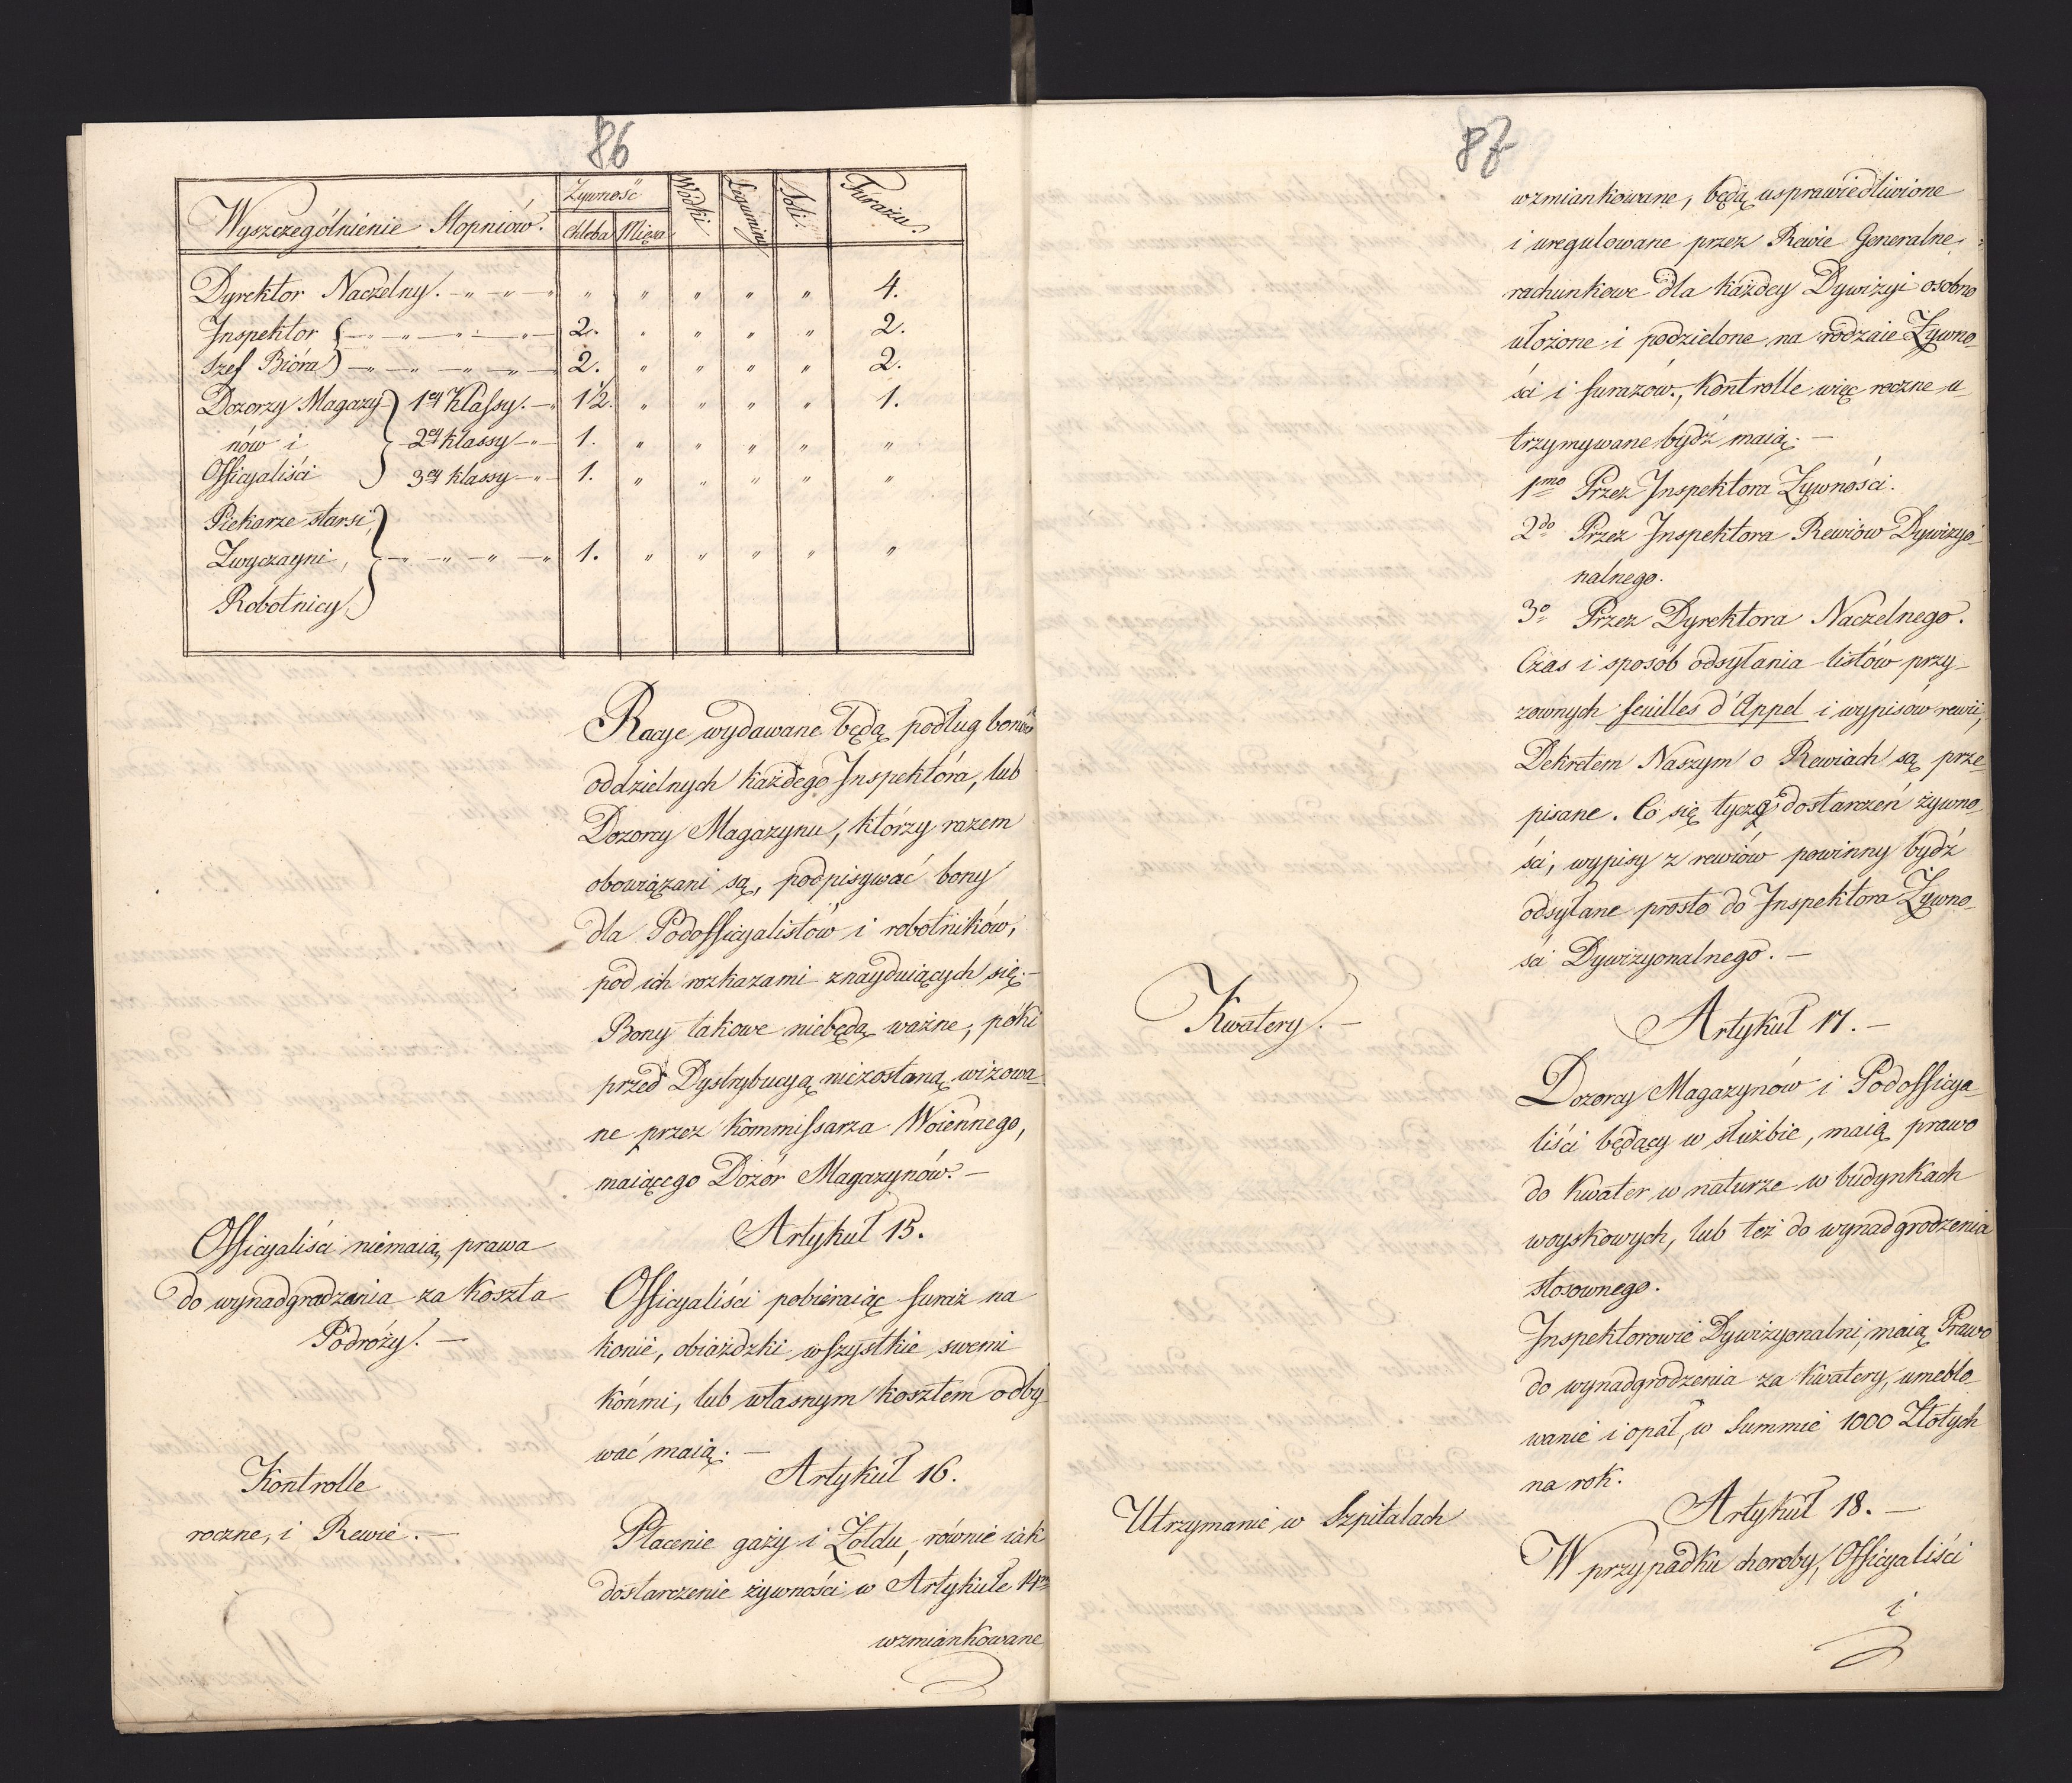 86
Wyszczególnienie Stopniów.
Żywność
Chleba Mięsa
Wódki
Leguminy
Soli.
Furażu.
Dyrektor Naczelny. - „ - „ - „ „ „ „ „ „ 4.
Inspektor - „ - „ - „ - „ 2. „ „ „ „ 2.
Szef Bióra - „ - „ - „ - „ 2. „ „ „ „ 2.
Dozorzy Magazy- 1ey Klassy. - „ 1½. „ „ „ „ 1.
nów i 2ey klassy - „ 1. „ „ „ „ „
Officyaliści 3ey klassy - „ - 1. „ „ „ „ „
Piekarze starsi,
Zwyczayni, - „ - „ - „ - „ 1. „ „ „ „ „
Robotnicy
Racye wydawane będą podług bonów
oddzielnych każdego Inspektora, lub
Dozorcy Magazynu, którzy razem
obowiązani są, podpisywać bony
dla Podofficyalistów i robotników,
pod ich rozkazami znayduiących się. -
Bony takowe niebędą ważne, póki
przed Dystrybucyą niezostaną wizowa
ne przez Kommissarza Woiennego,
maiącego Dozór Magazynów. -
Artykuł 15.
Officyaliści niemaią prawa
do wynadgradzania za Koszta
Podróży. -
Officyaliści pobieraiąc furaż na
konie, obiażdzki wszystkie swemi
końmi, lub własnym kosztem odby
wać maią. -
Artykuł 16.
Kontrolle
roczne, i Rewie. -
Płacenie gaży i Żołdu, równie iak
dostarczenie żywności w Artykule 14m
wzmiankowane
87
wzmiankowane, będą usprawiedliwione
i uregulowane przez Rewie Generalne
rachunkowe dla każdey Dywizyi osobno
ułożone i podzielone na rodzaie Żywno-
ści i furażów., Kontrolle więc roczne u-
trzymywane bydź maią. -
1mo Przez Inspektora Żywności.
2do Przez Inspektora Rewiów Dywizyo-
nalnego.
3o Przez Dyrektora Naczelnego.
Czas i sposób odsyłania listów przy-
zownych feuilles d'Appel i wypisów rewii,
Dekretem Naszym o Rewiach są prze-
pisane. Co się tycze dostarczeń żywno-
ści, wypisy z rewiów powinny bydź
odsyłane prosto do Inspektora Żywno-
ści Dywizyonalnego. -
Kwatery. -
Artykuł 17. -
Dozorcy Magazynów i Podofficya-
liści będący w służbie, maią prawo
do Kwater w naturze w budynkach
woyskowych, lub też do wynadgrodzenia
stosownego.
Inspektorowie Dywizyonalni, maią Prawo
do wynadgrodzenia za Kwatery, umeblo-
wanie i opał, w Summie 1000 Złotych
na rok.
Utrzymanie w Szpitalach
Artykuł 18. -
W przypadku choroby, Officyaliści
i